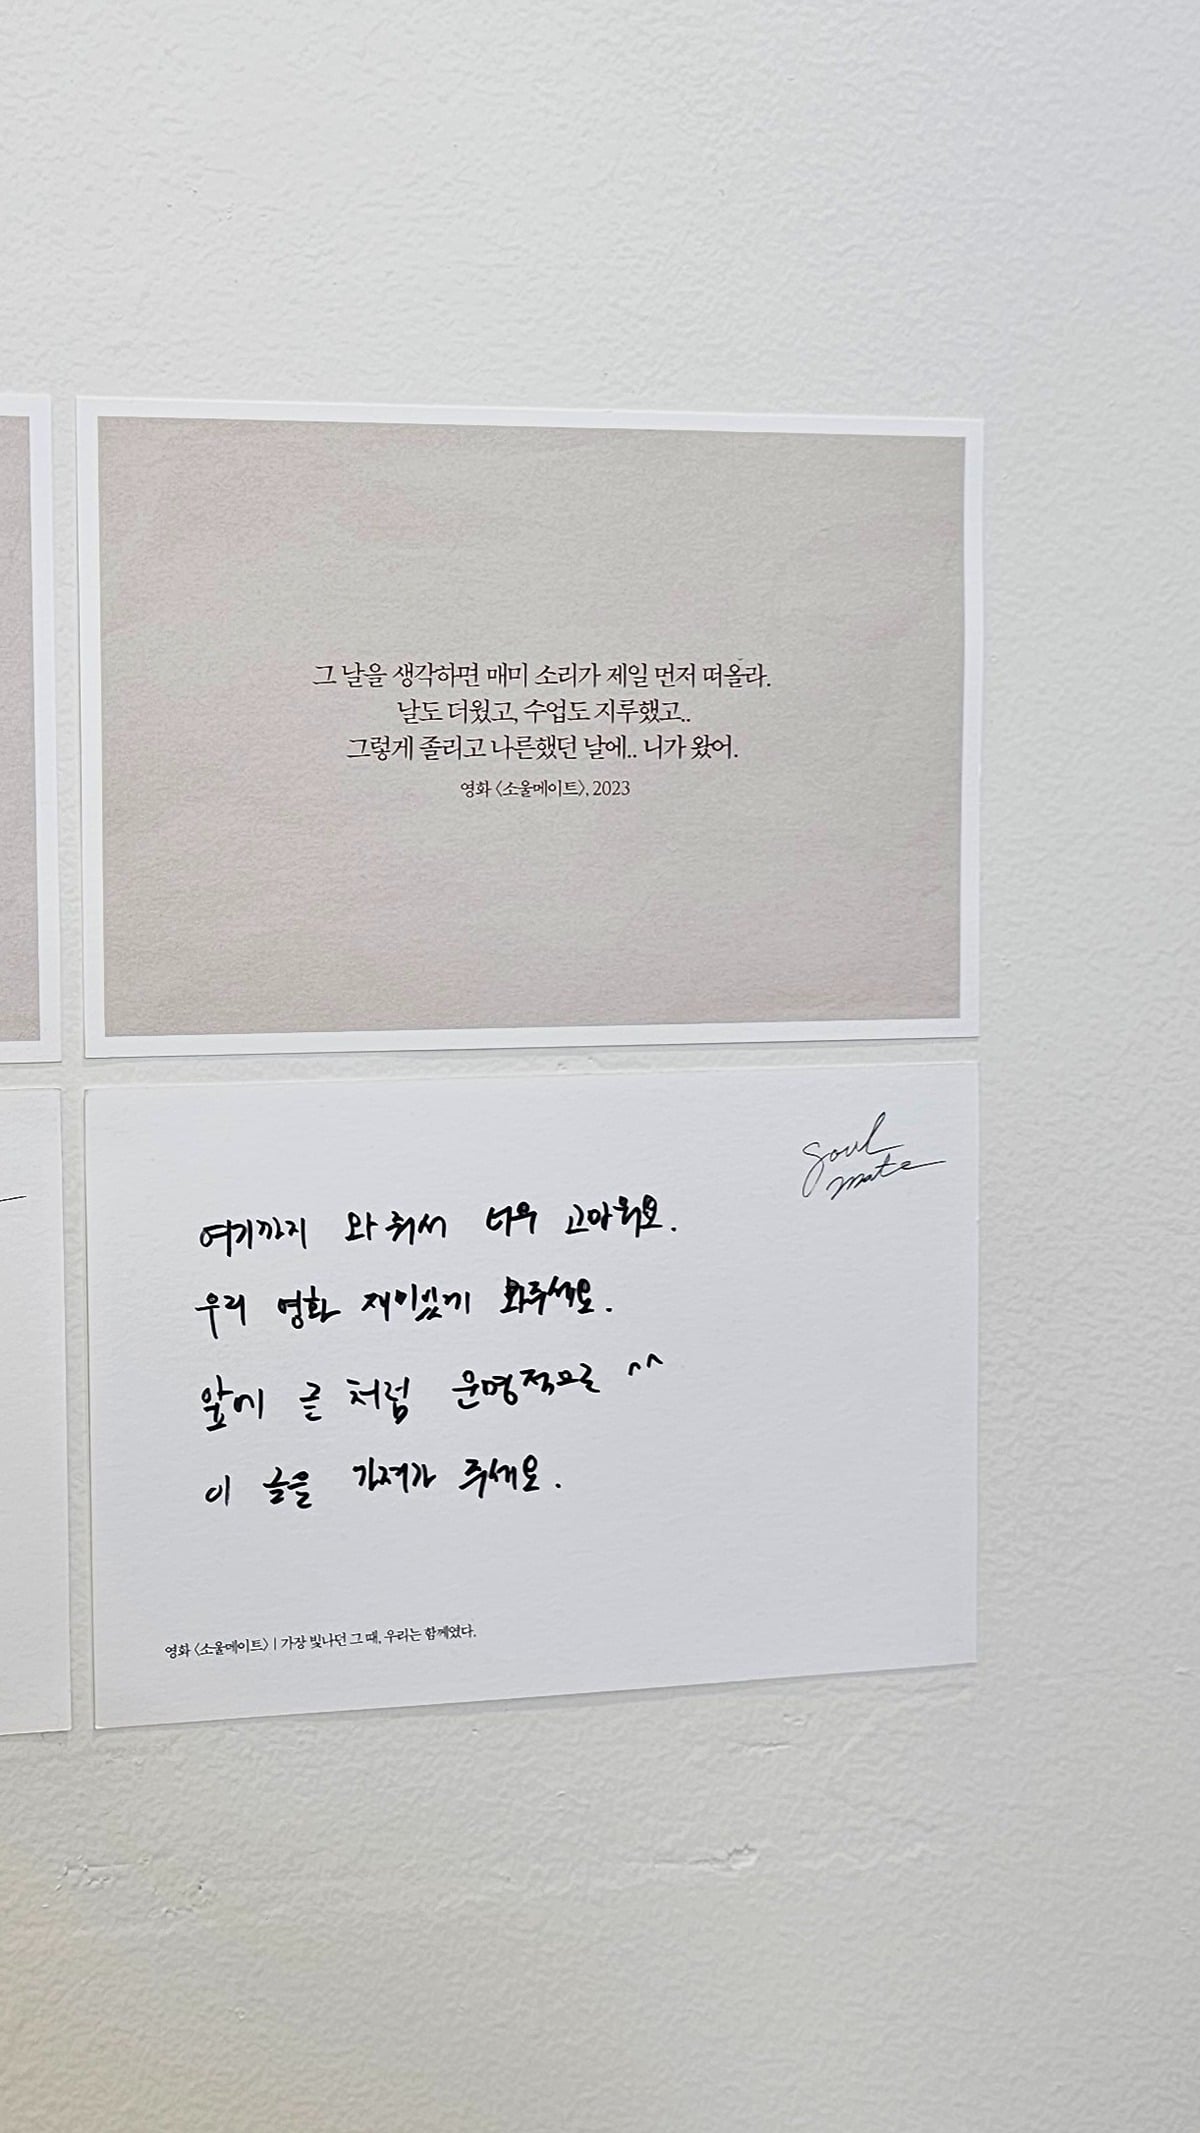 그 날을 생각하면 매미 소리가 제일 먼저 떠올라.
날도 더웠고, 수업도 지루했고..
그렇게 졸리고 나른했던 날에.. 니가 왔어.
영화 〈소울메이트〉, 2023
Soul
mate
여기까지 와 줘서 너무 고마워요.
우리 영화 재미있게 봐주세요.
앞에 글 처럼 운명적으로 ^^
이 글을 가져가 주세요.
영화 〈소울메이트〉 | 가장 빛나던 그 때, 우리는 함께였다.